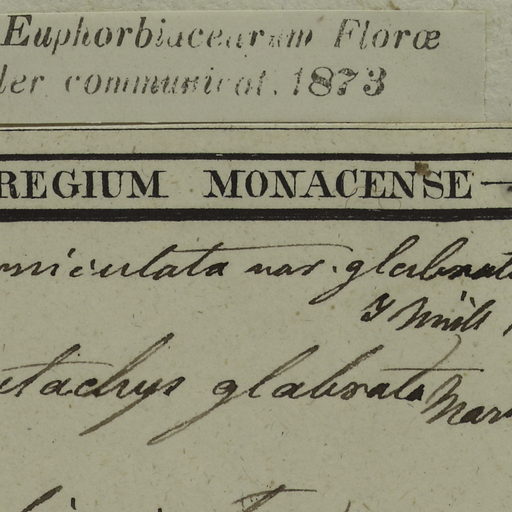 Euphorbiacearum Floræ
ler communicat. 1873
REGIUM MONACENSE
miculata var. glabrata
J Müll
stachys glabrata Mart